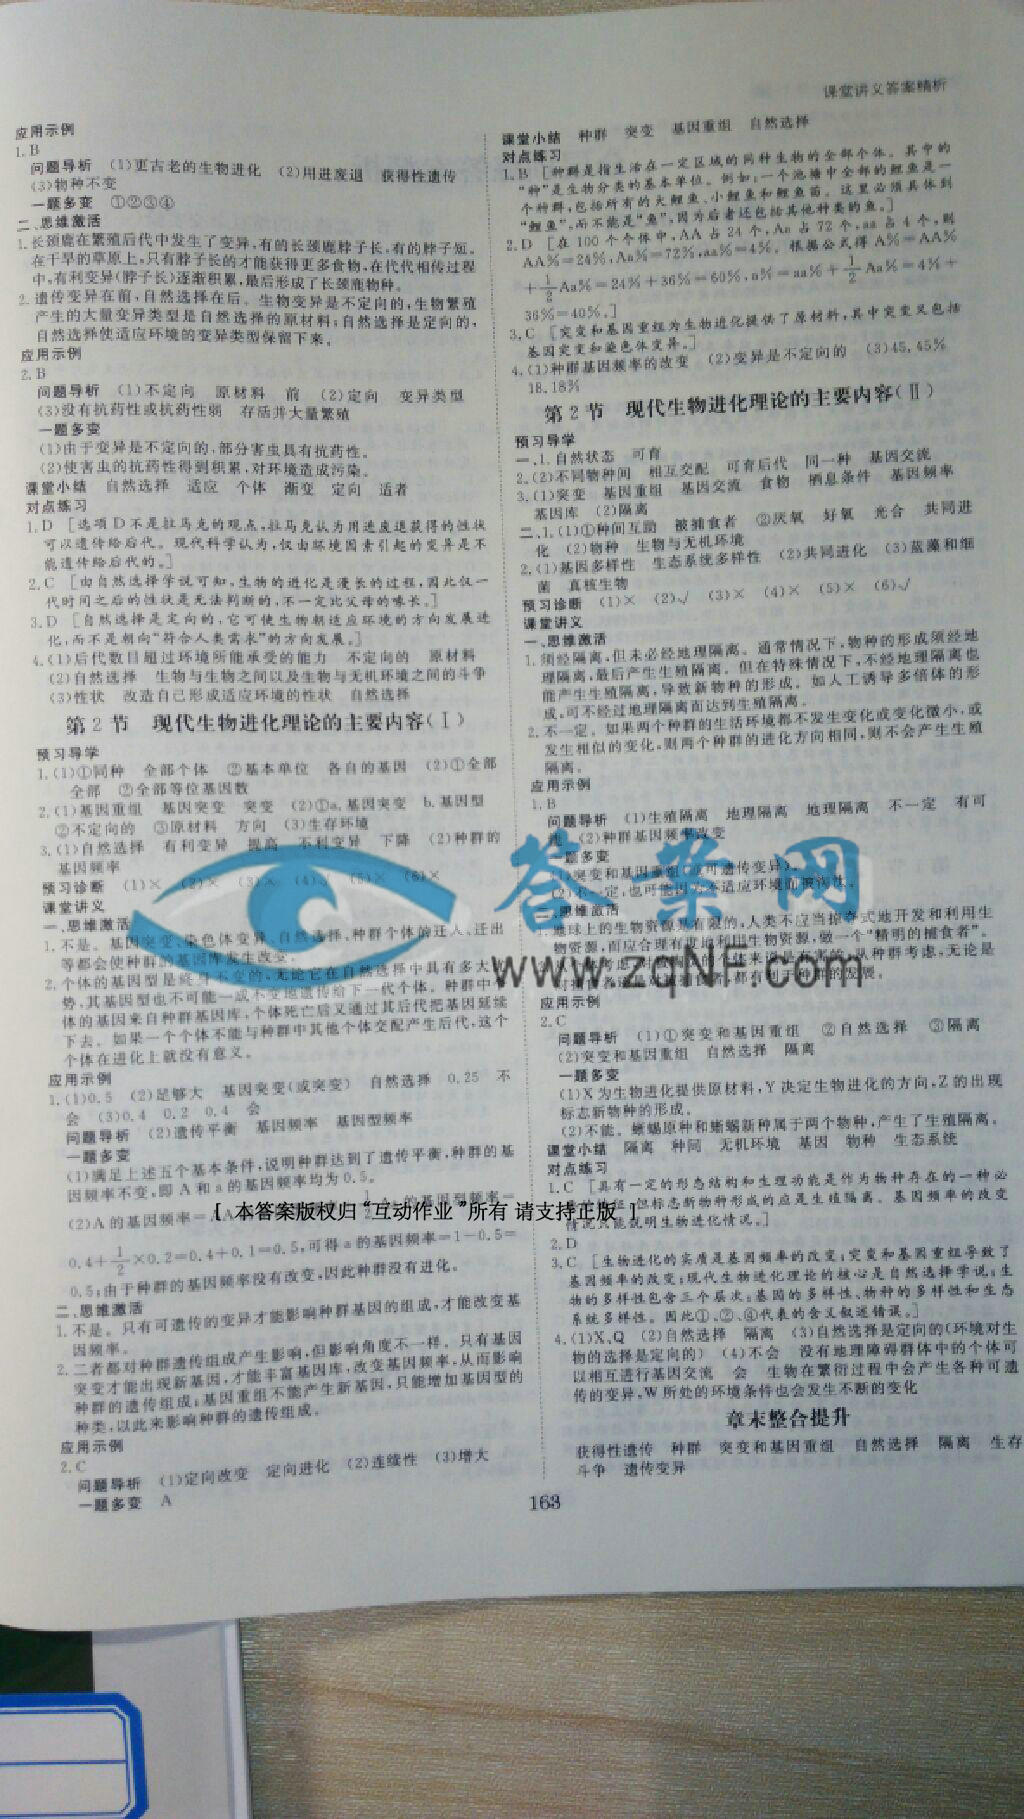 课堂讲义答案精析
应用示例
1.B
问题导析 (1)更古老的生物进化 (2)用进废退 获得性遗传
(3)物种不变
一题多变 ①②③④
二、思维激活
1.长颈鹿在繁殖后代中发生了变异,有的长颈鹿脖子长,有的脖子短。
在干旱的草原上,只有脖子长的才能获得更多食物,在代代相传过程
中,有利变异(脖子长)逐渐积累,最后形成了长颈鹿物种。
2.遗传变异在前,自然选择在后。生物变异是不定向的,生物繁殖
产生的大量变异类型是自然选择的原材料;自然选择是定向的,
自然选择使适应环境的变异类型保留下来。
应用示例
2.B
问题导析 (1)不定向 原材料 前 (2)定向 变异类型
(3)没有抗药性或抗药性弱 存活并大量繁殖
一题多变
(1)由于变异是不定向的,部分害虫具有抗药性。
(2)使害虫的抗药性得到积累,对环境造成污染。
课堂小结 自然选择 适应 个体 渐变 定向 适者
对点练习
1.D [选项D不是拉马克的观点,拉马克认为用进废退获得的性状
可以遗传给后代。现代科学认为,仅由环境因素引起的变异是不
能遗传给后代的。]
2.C [由自然选择学说可知,生物的进化是漫长的过程,因此仅一
代时间之后的性状是无法判断的,不一定比父母的喙长。]
3.D [自然选择是定向的,它可使生物朝适应环境的方向发展进
化,而不是朝向“符合人类需求”的方向发展。]
4.(1)后代数目超过环境所能承受的能力 不定向的 原材料
(2)自然选择 生物与生物之间以及生物与无机环境之间的斗争
(3)性状 改造自己形成适应环境的性状 自然选择
第2节 现代生物进化理论的主要内容(Ⅰ)
预习导学
1.(1)①同种 全部个体 ②基本单位 各自的基因 (2)①全部
全部 ②全部等位基因数
2.(1)基因重组 基因突变 突变 (2)①a.基因突变 b.基因型
②不定向的 ③原材料 方向 (3)生存环境
3.(1)自然选择 有利变异 提高 不利变异 下降 (2)种群的
基因频率
预习诊断 (1)× (2)× (3)× (4)√ (5)× (6)×
课堂讲义
一、思维激活
1.不是。基因突变、染色体变异、自然选择,种群个体的迁入、迁出
等都会使种群的基因库发生改变。
2.个体的基因型是终身不变的,无论它在自然选择中具有多大优
势,其基因型也不可能一成不变地遗传给下一代个体。种群中个
体的基因来自种群基因库,个体死亡后又通过其后代把基因延续
下去。如果一个个体不能与种群中其他个体交配产生后代,这个
个体在进化上就没有意义。
应用示例
1.(1)0.5 (2)足够大 基因突变(或突变) 自然选择 0.25 不
会 (3)0.4 0.2 0.4 会
问题导析 (2)遗传平衡 基因频率 基因型频率
一题多变
(1)满足上述五个基本条件,说明种群达到了遗传平衡,种群的基
因频率不变,即A和a的基因频率均为0.5。
(2)A的基因频率
0.4+1/2×0.2=0.4+0.1=0.5,可得a的基因频率=1-0.5=
0.5;由于种群的基因频率没有改变,因此种群没有进化。
二、思维激活
1.不是。只有可遗传的变异才能影响种群基因的组成,才能改变基
因频率。
2.二者都对种群遗传组成产生影响,但影响角度不一样。只有基因
突变才能出现新基因,才能丰富基因库,改变基因频率,从而影响
种群的遗传组成;基因重组不能产生新基因,只能增加基因型的
种类,以此来影响种群的遗传组成。
应用示例
2.C
问题导析 (1)定向改变 定向进化 (2)连续性 (3)增大
一题多变 A
课堂小结 种群 突变 基因重组 自然选择
对点练习
1.B [种群是指生活在一定区域的同种生物的全部个体。其中的
“种”是生物分类的基本单位。例如:一个池塘中全部的鲤鱼是一
个种群,包括所有的大鲤鱼、小鲤鱼和鲤鱼苗。这里必须具体到
“鲤鱼”,而不能是“鱼”,因为后者还包括其他种类的鱼。]
2.D [在100个个体中,AA占24个,Aa占72个,aa占4个,则
AA%=24%,Aa%=72%,aa%=4%。根据公式得A%=AA%
+1/2Aa%=24%+36%=60%,a%=aa%+1/2Aa%=4%+
36%=40%。]
3.C [突变和基因重组为生物进化提供了原材料,其中突变又包括
基因突变和染色体变异。]
4.(1)种群基因频率的改变 (2)变异是不定向的 (3)45.45%
18.18%
第2节 现代生物进化理论的主要内容(Ⅱ)
预习导学
一、1.自然状态 可育
2.(2)不同物种间 相互交配 可育后代 同一种 基因交流
3.(1)突变 基因重组 基因交流 食物 栖息条件 基因频率
基因库 (2)隔离
二、1.(1)①种间互助 被捕食者 ②厌氧 好氧 光合 共同进
化 (2)物种 生物与无机环境
2.(1)基因多样性 生态系统多样性 (2)共同进化 (3)蓝藻和细
菌 真核生物
预习诊断 (1)× (2)√ (3)× (4)× (5)× (6)√
课堂讲义
一、思维激活
1.须经隔离,但未必经地理隔离。通常情况下,物种的形成须经地
理隔离,最后产生生殖隔离。但在特殊情况下,不经地理隔离也
能产生生殖隔离,导致新物种的形成。如人工诱导多倍体的形
成,可不经过地理隔离而达到生殖隔离。
2.不一定。如果两个种群的生活环境都不发生变化或变化微小,或
发生相似的变化,则两个种群的进化方向相同,则不会产生生殖
隔离。
应用示例
1.B
问题导析 (1)生殖隔离 地理隔离 地理隔离 不一定 有可
能 (2)种群基因频率改变
一题多变
(1)突变和基因重组(或可遗传变异)。
(2)不一定,也可能因为不适应环境而被淘汰。
二、思维激活
地球上的生物资源是有限的,人类不应当掠夺式地开发和利用生
物资源,而应合理有度地利用生物资源,做一个“精明的捕食者”。
应用示例
2.C
问题导析 (1)①突变和基因重组 ②自然选择 ③隔离
(2)突变和基因重组 自然选择 隔离
一题多变
(1)X为生物进化提供原材料,Y决定生物进化的方向,Z的出现
标志新物种的形成。
(2)不能。蟋蟀原种和蟋蟀新种属于两个物种,产生了生殖隔离。
课堂小结 隔离 种间 无机环境 基因 物种 生态系统
对点练习
1.C [具有一定的形态结构和生理功能是作为物种存在的一种必
要的特征,但标志新物种形成的应是生殖隔离。基因频率的改变
情况只能说明生物进化情况。]
2.D
3.C [生物进化的实质是基因频率的改变;突变和基因重组导致了
基因频率的改变;现代生物进化理论的核心是自然选择学说;生
物的多样性包含三个层次:基因的多样性、物种的多样性和生态
系统多样性。因此①、②、④代表的含义叙述错误。]
4.(1)X、Q (2)自然选择 隔离 (3)自然选择是定向的(环境对生
物的选择是定向的) (4)不会 没有地理障碍群体中的个体可
以相互进行基因交流 会 生物在繁衍过程中会产生各种可遗
传的变异,W所处的环境条件也会发生不断的变化
章末整合提升
获得性遗传 种群 突变和基因重组 自然选择 隔离 生存
斗争 遗传变异
163
答案网
www.zqNF.com
[ 本答案版权归“互动作业”所有 请支持正版 ]